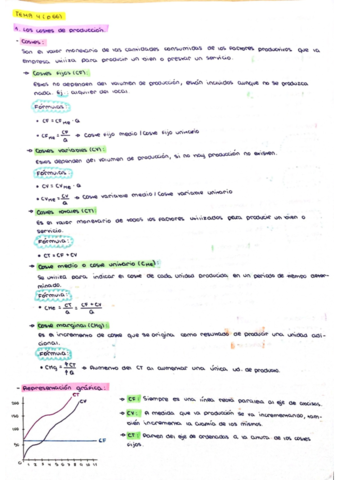 TEMA 4 (0.66)
1. Los costes de producción.
- Costes:
Son el valor monetario de las cantidades consumidas de los factores productivos que la
empresa utiliza para producir un bien o prestar un servicio.
→ Costes fijos (CF):
Estos no dependen del volumen de producción, están incluidos aunque no se produzca
nada. Ej: alquiler del local.
Fórmulas:
• CF = CFMe · Q
• CFMe = CF/Q → Coste fijo medio / Coste fijo unitario
→ Costes variables (CV):
Estos dependen del volumen de producción, si no hay producción no existen.
Fórmulas:
• CV = CVMe · Q
• CVMe = CV/Q → Coste variable medio / Coste variable unitario
→ Costes totales (CT):
Es el valor monetario de todos los factores utilizados para producir un bien o
servicio.
Fórmula:
• CT = CF + CV
→ Coste medio o coste unitario (CMe):
Se utiliza para indicar el coste de cada unidad producida en un periodo de tiempo deter-
minado.
Fórmula:
• CMe = CT/Q = CF + CV/Q
→ Coste marginal (CMg):
Es el incremento de coste que se origina como resultado de producir una unidad adi-
cional.
Fórmula:
• CMg = CT/Q → Aumento del CT al aumentar una única ud. de produce.
- Representación gráfica:
CT
CV
CF
200
150
100
50
1 2 3 4 5 6 7 8 9 10 11
→ CF: Siempre es una línea recta paralela al eje de abscisas.
→ CV: A medida que la producción se va incrementando, tam-
bién incrementa la cuantía de los mismos.
→ CT: Parten del eje de ordenadas a la altura de los costes
fijos.